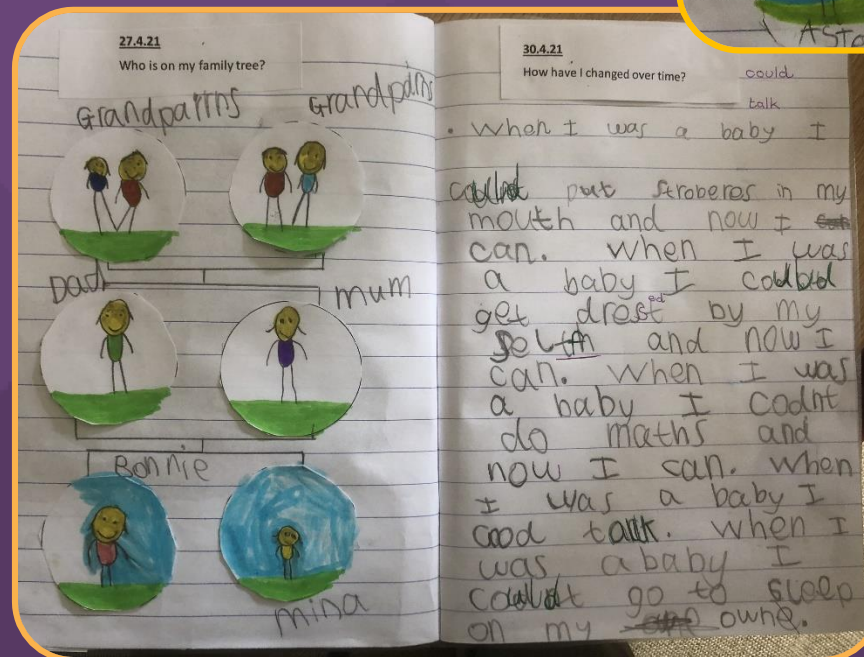 ASTO
27.4.21
Who is on my family tree?
Grandparrns Grandparns
Dad mum
Bonnie
mina
30.4.21
How have I changed over time?
could
talk
• When I was a baby I
put stroberes in my
mouth and now I
can. When I was
a baby I
get dressed by my
and now I
can. When I was
a baby I codnt
do maths and
now I can. When
I was a baby I
cood talk. When I
was a baby I
go to sleep
on my owne.